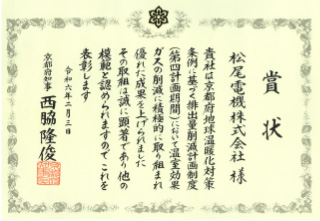 賞状
松尾電機株式会社 様
貴社は京都府地球温暖化対策
条例に基づく排出量削減計画制度
(第四計画期間)において温室効果
ガスの削減に積極的に取り組まれ
優れた成果を上げられました
その取組は誠に顕著であり他の
模範と認められますのでこれを
表彰します
令和六年二月三日
京都府知事 西脇隆俊